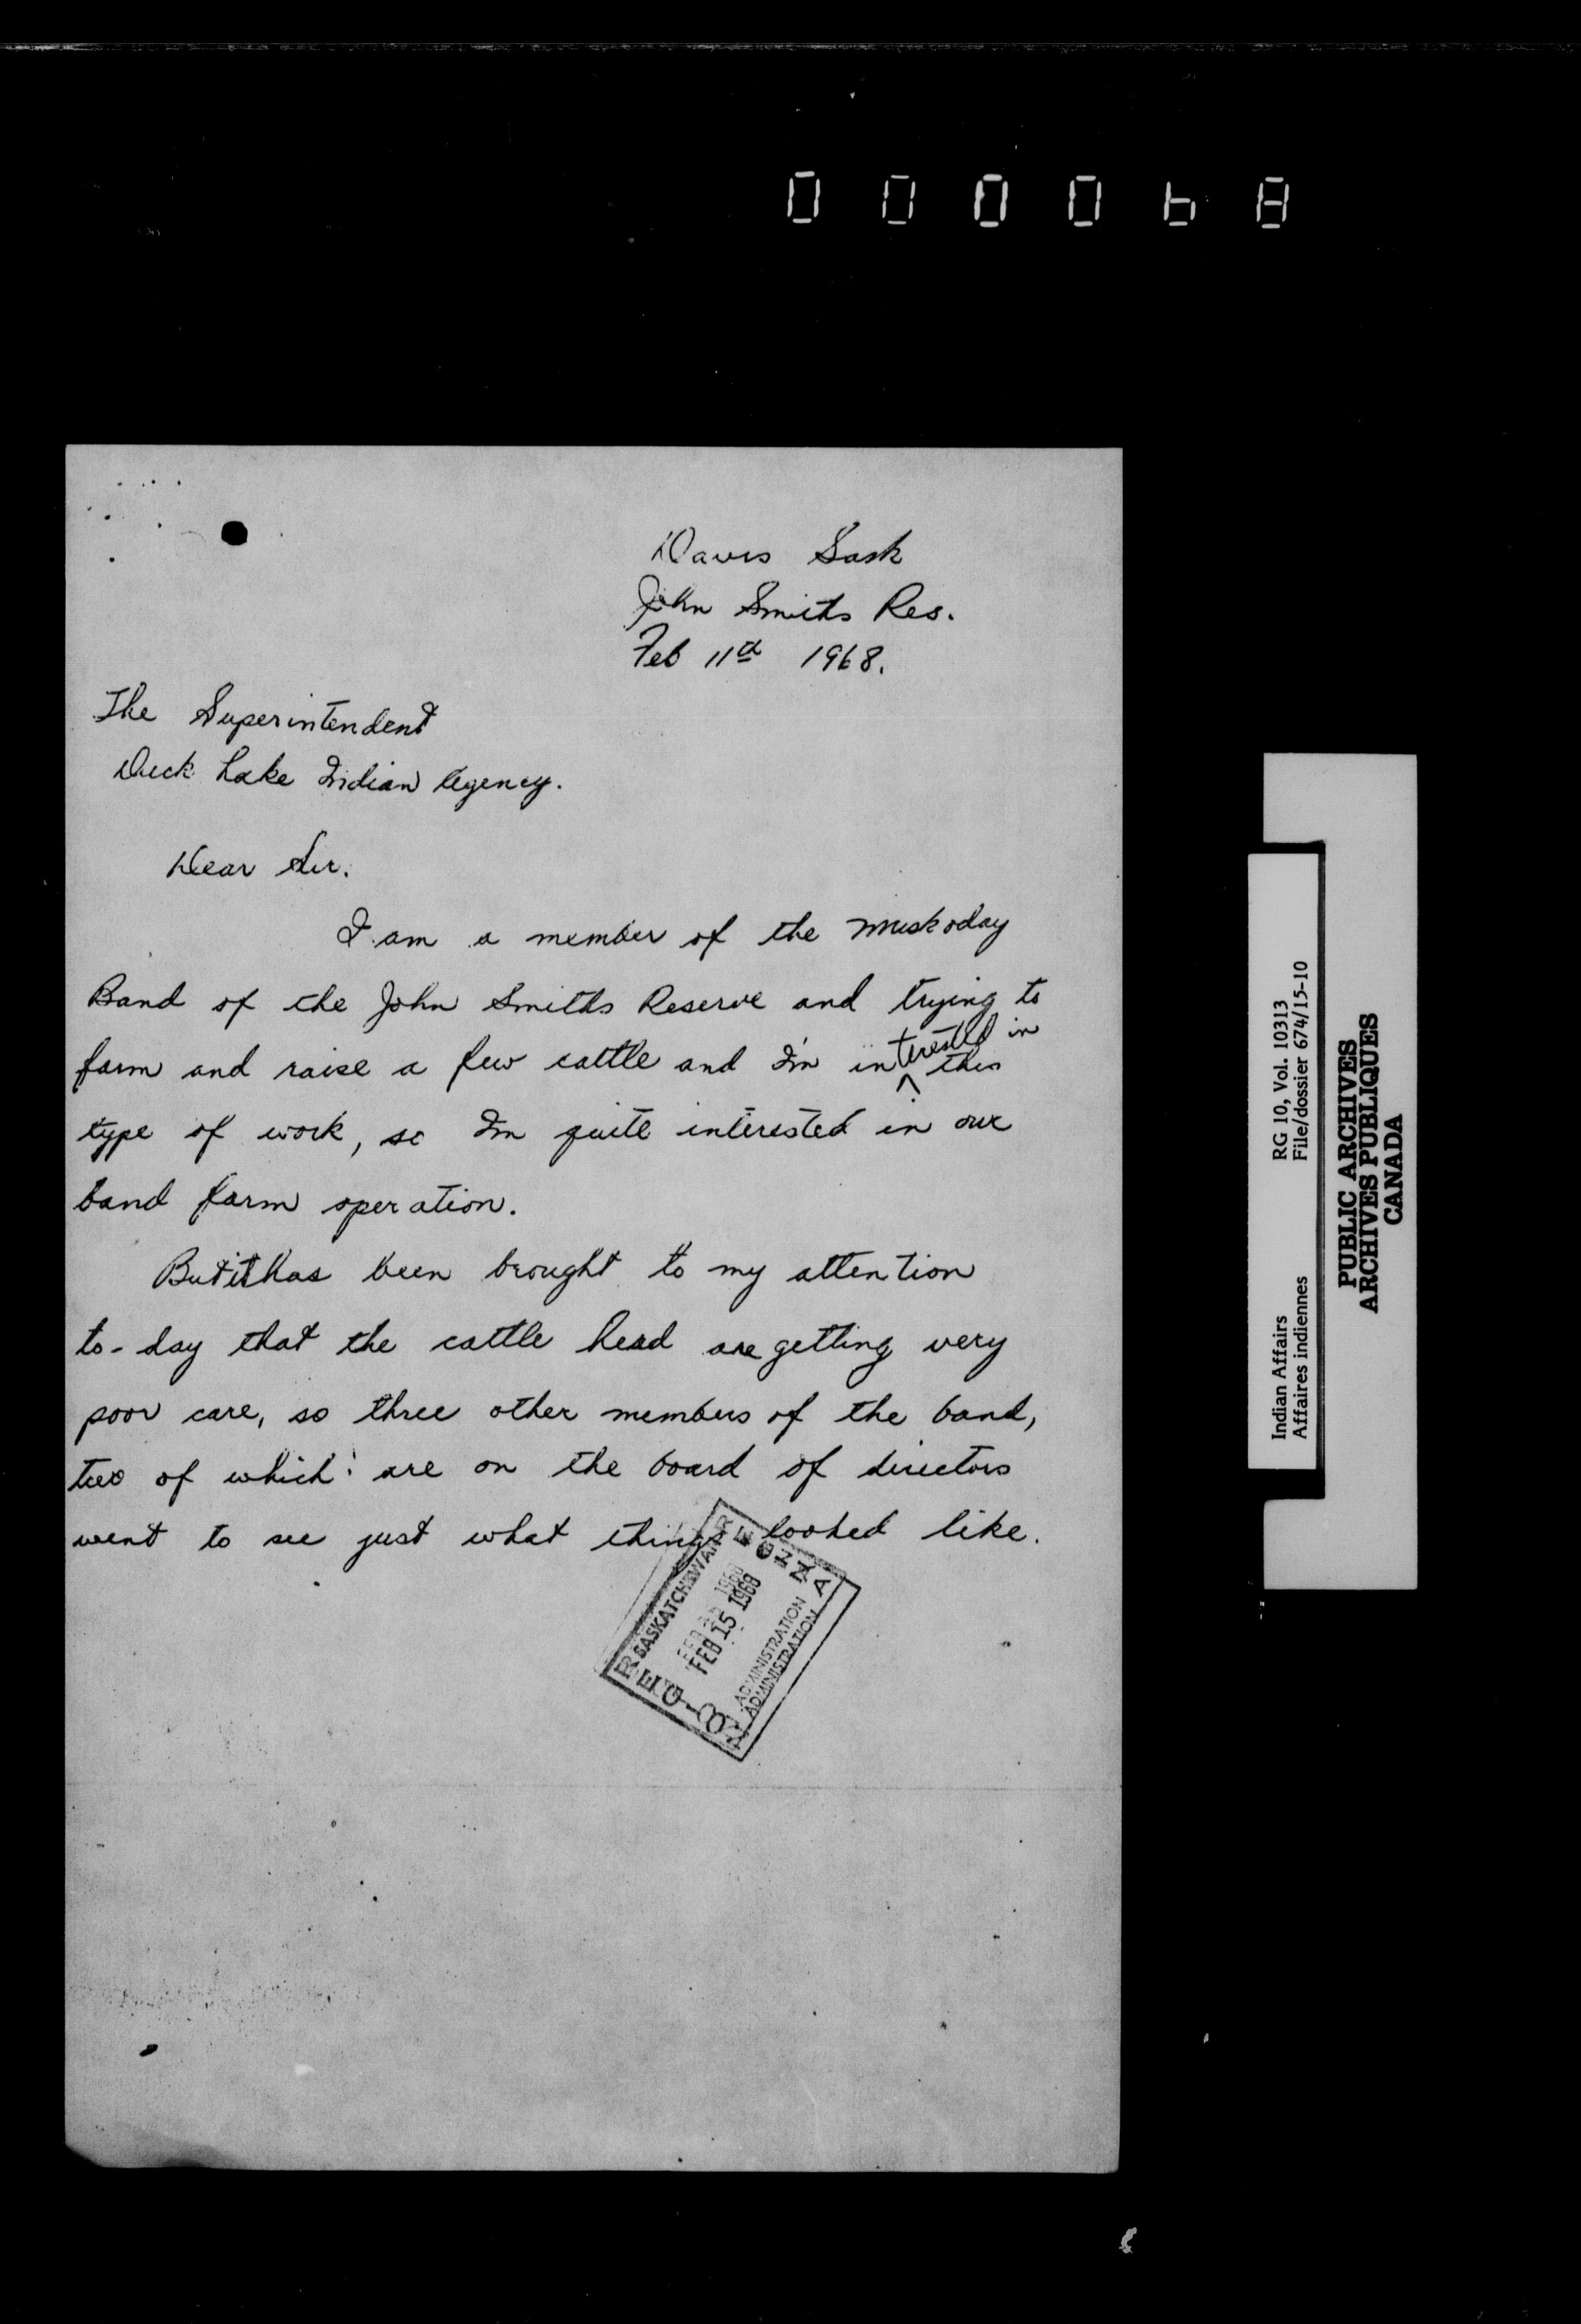 000068
Davis Sask
John Smiths Res.
Feb 11th 1968.
The Superintendent
Duck Lake Indian Agency.
Dear Sir.
I am a member of the Muskoday
Band of the John Smiths Reserve and trying to
farm and raise a few cattle and I'm interested in this
type of work, so I'm quite interested in our
band farm operation.
But it has been brought to my attention
to-day that the cattle herd are getting very
poor care, so three other members of the band,
two of which are on the board of directors
went to see just what things looked like.
REGINA
SASKATCHEWAN
FEB 15 1968
ADMINISTRATION
ADMINISTRATION
REGION
Indian Affairs RG 10, Vol. 10313
Affaires indiennes File/dossier 674/15-10
PUBLIC ARCHIVES
ARCHIVES PUBLIQUES
CANADA